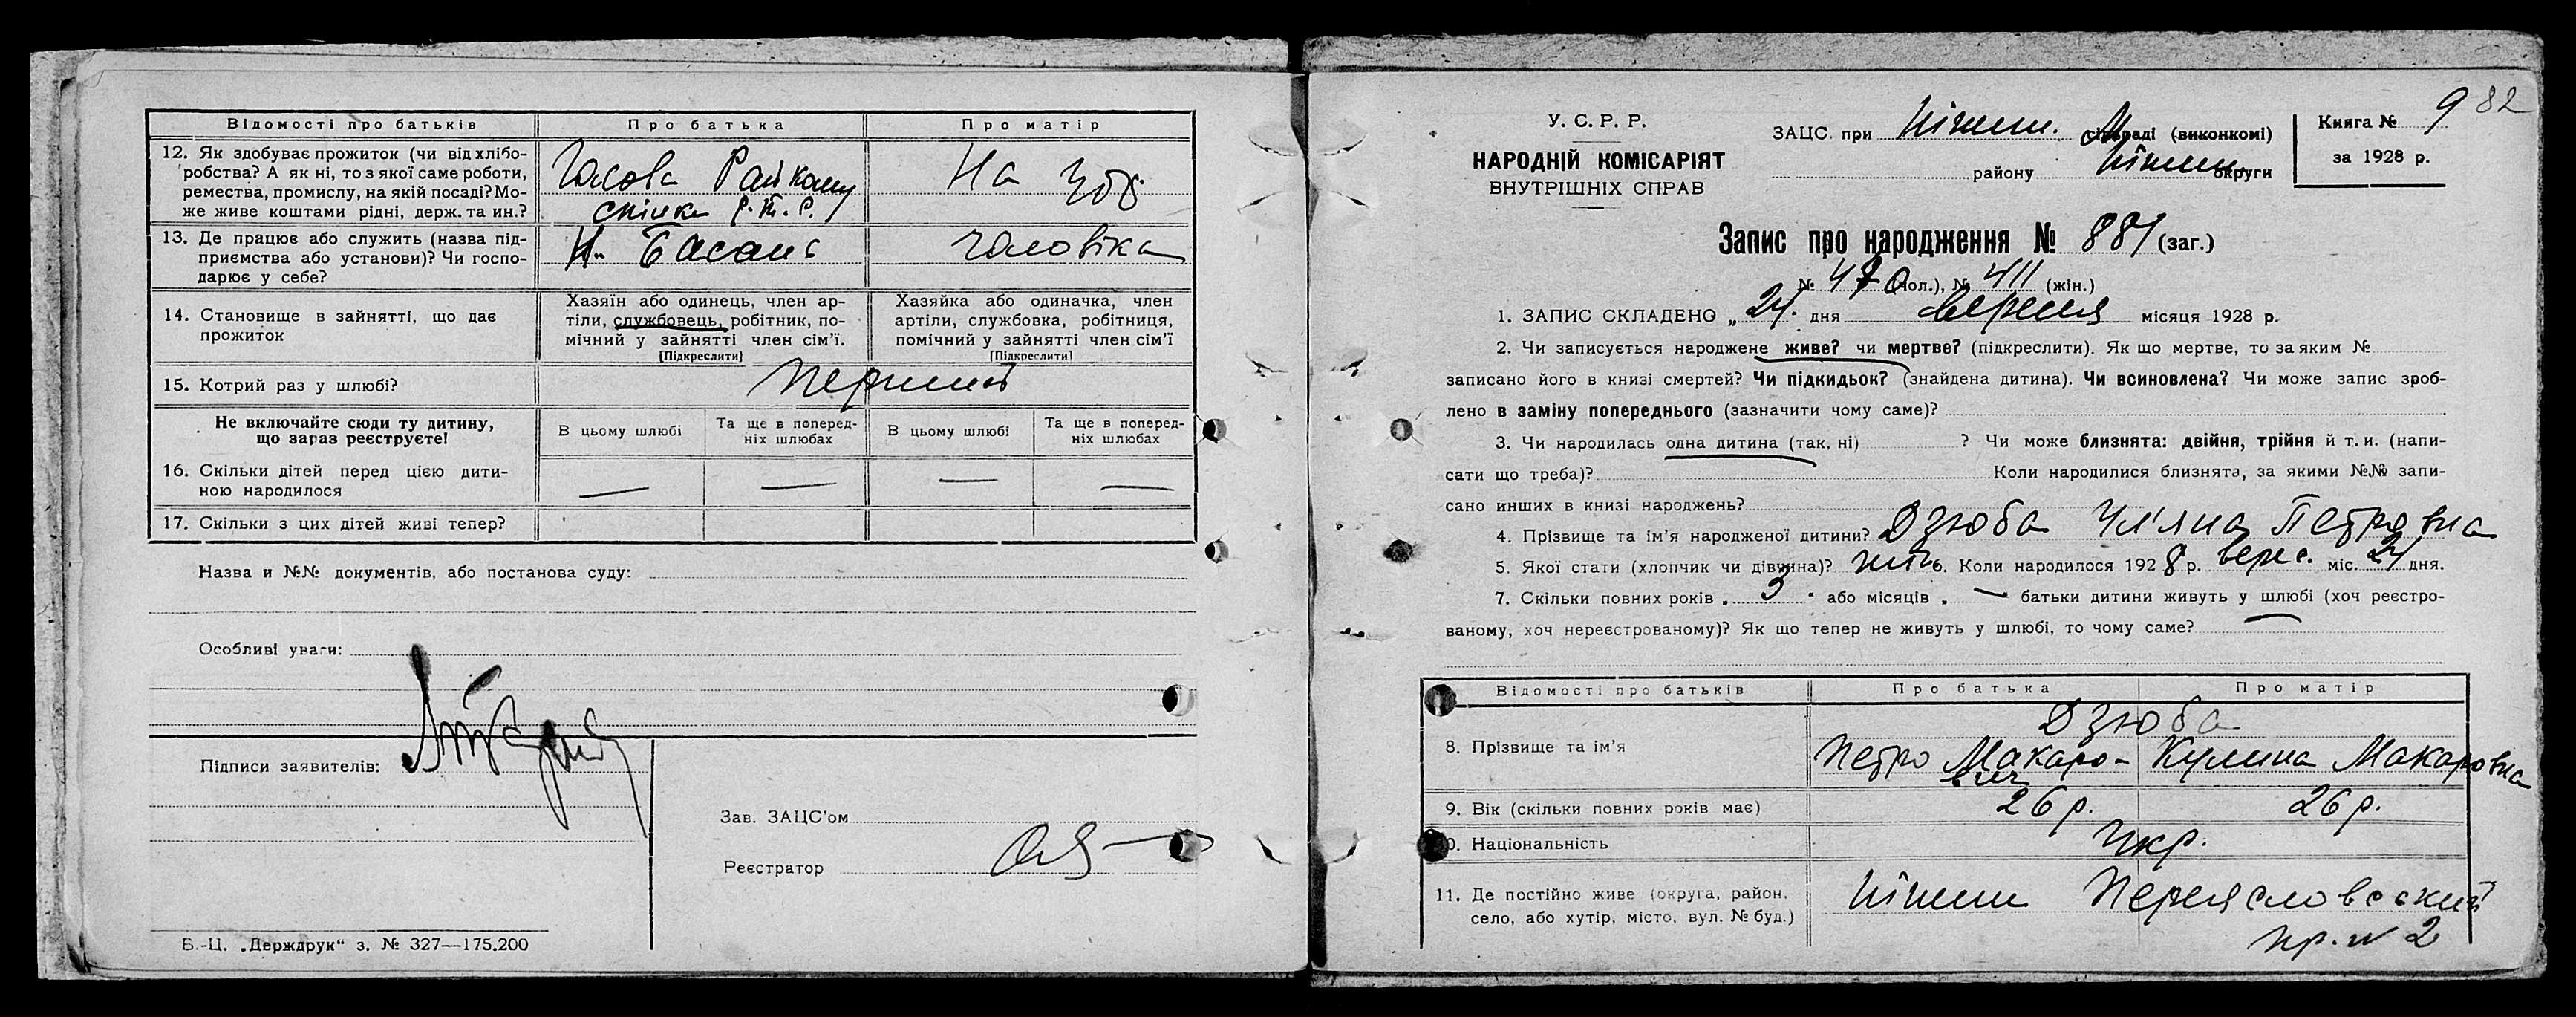 Відомості про батьків
Про батька
Про матір
12. Як здобуває прожиток (чи від хлібо-
робства? А як ні, то з якої саме роботи,
ремества, промислу, на якій посаді? Мо-
же живе коштами рідні, держ. та ин.?
Голова Райкому
спілки
На
13. Де працює або служить (назва під-
приємства або установи)? Чи госпо-
дарює у себе?
Н. Басань
чоловіка
14. Становище в зайнятті, що дає
прожиток
Хазяїн або одинець, член ар-
тіли, службовець, робітник, по-
мічний у зайнятті член сім'ї.
[Підкреслити]
Хазяйка або одиначка, член
артіли, службовка, робітниця,
помічний у зайнятті член сім'ї
[Підкреслити]
15. Котрий раз у шлюбі?
перший
Не включайте сюди ту дитину,
що зараз реєструєте!
В цьому шлюбі
Та ще в поперед-
ніх шлюбах
В цьому шлюбі
Та ще в поперед-
ніх шлюбах
16. Скільки дітей перед цією дити-
ною народилося
— — — —
17. Скільки з цих дітей живі тепер?
Назва и №№ документів, або постанова суду:
Особливі уваги:
Підписи заявителів:
Зав. ЗАЦС'ом
Реєстратор
Б.-Ц. „Держдрук“ з. № 327—175.200
982
У. С. Р. Р.
НАРОДНІЙ КОМІСАРІЯТ
ВНУТРІШНІХ СПРАВ
ЗАЦС. при Ніжин. сільраді (виконкомі)
району Ніжин. округи
Книга № 9
за 1928 р.
Запис про народження № 881 (заг.)
№ 470 (чол.), № 411 (жін.)
1. ЗАПИС СКЛАДЕНО „24. дня вересня місяця 1928 р.
2. Чи записується народжене живе? чи мертве? (підкреслити). Як що мертве, то за яким №
записано його в книзі смертей? Чи підкидьок? (знайдена дитина). Чи всиновлена? Чи може запис зроб-
лено в заміну попереднього (зазначити чому саме)?
3. Чи народилась одна дитина (так, ні) ? Чи може близнята: двійня, трійня й т. и. (напи-
сати що треба)? Коли народилися близнята, за якими №№ запи-
сано инших в книзі народжень?
4. Прізвище та ім'я народженої дитини? Дзюба Ул'яна Петровна
5. Якої статі (хлопчик чи дівчина)? 6. Коли народилося 1928 р. верес. міс. 21 дня.
7. Скільки повних років „ 3 " або місяців „ — батьки дитини живуть у шлюбі (хоч реєстро-
ваному, хоч нереєстрованому)? Як що тепер не живуть у шлюбі, то чому саме?
Відомості про батьків
Про батька
Про матір
8. Прізвище та ім'я
Дзюба
Петро Макаро-
вич
Кулина Макаровна
9. Вік (скільки повних років має)
26 р.
26 р.
10. Національність
Укр.
11. Де постійно живе (округа, район,
село, або хутір, місто, вул. № буд.)
Ніжин Переясловський
пр. № 2